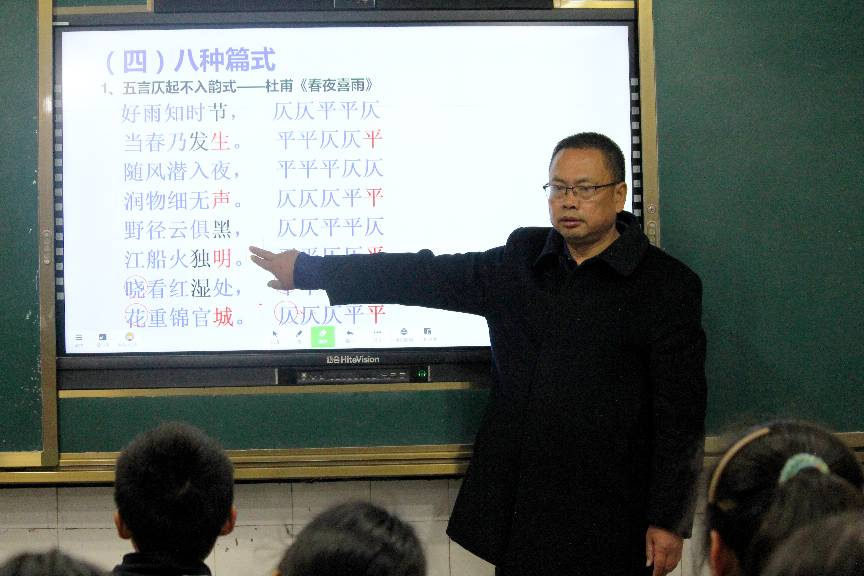 （四）八种篇式
1、五言仄起不入韵式——杜甫《春夜喜雨》
好雨知时节， 仄仄平平仄
当春乃发生。 平平仄仄平
随风潜入夜， 平平平仄仄
润物细无声。 仄仄仄平平
野径云俱黑， 仄仄平平仄
江船火独明。
晓看红湿处，
花重锦官城。 仄仄仄平平
HiteVision